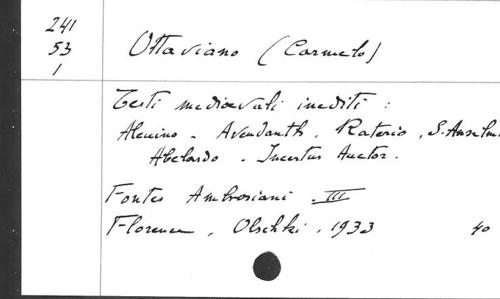 241
53
1
Ottaviano (Carmelo)
Testi mediœvali inediti :
Alcuino - Avendanth, Raterio, S. Anselm
Abelardo - Incertus Auctor.
Fontes Ambrosiani III
Florence, Olschki, 1933 40